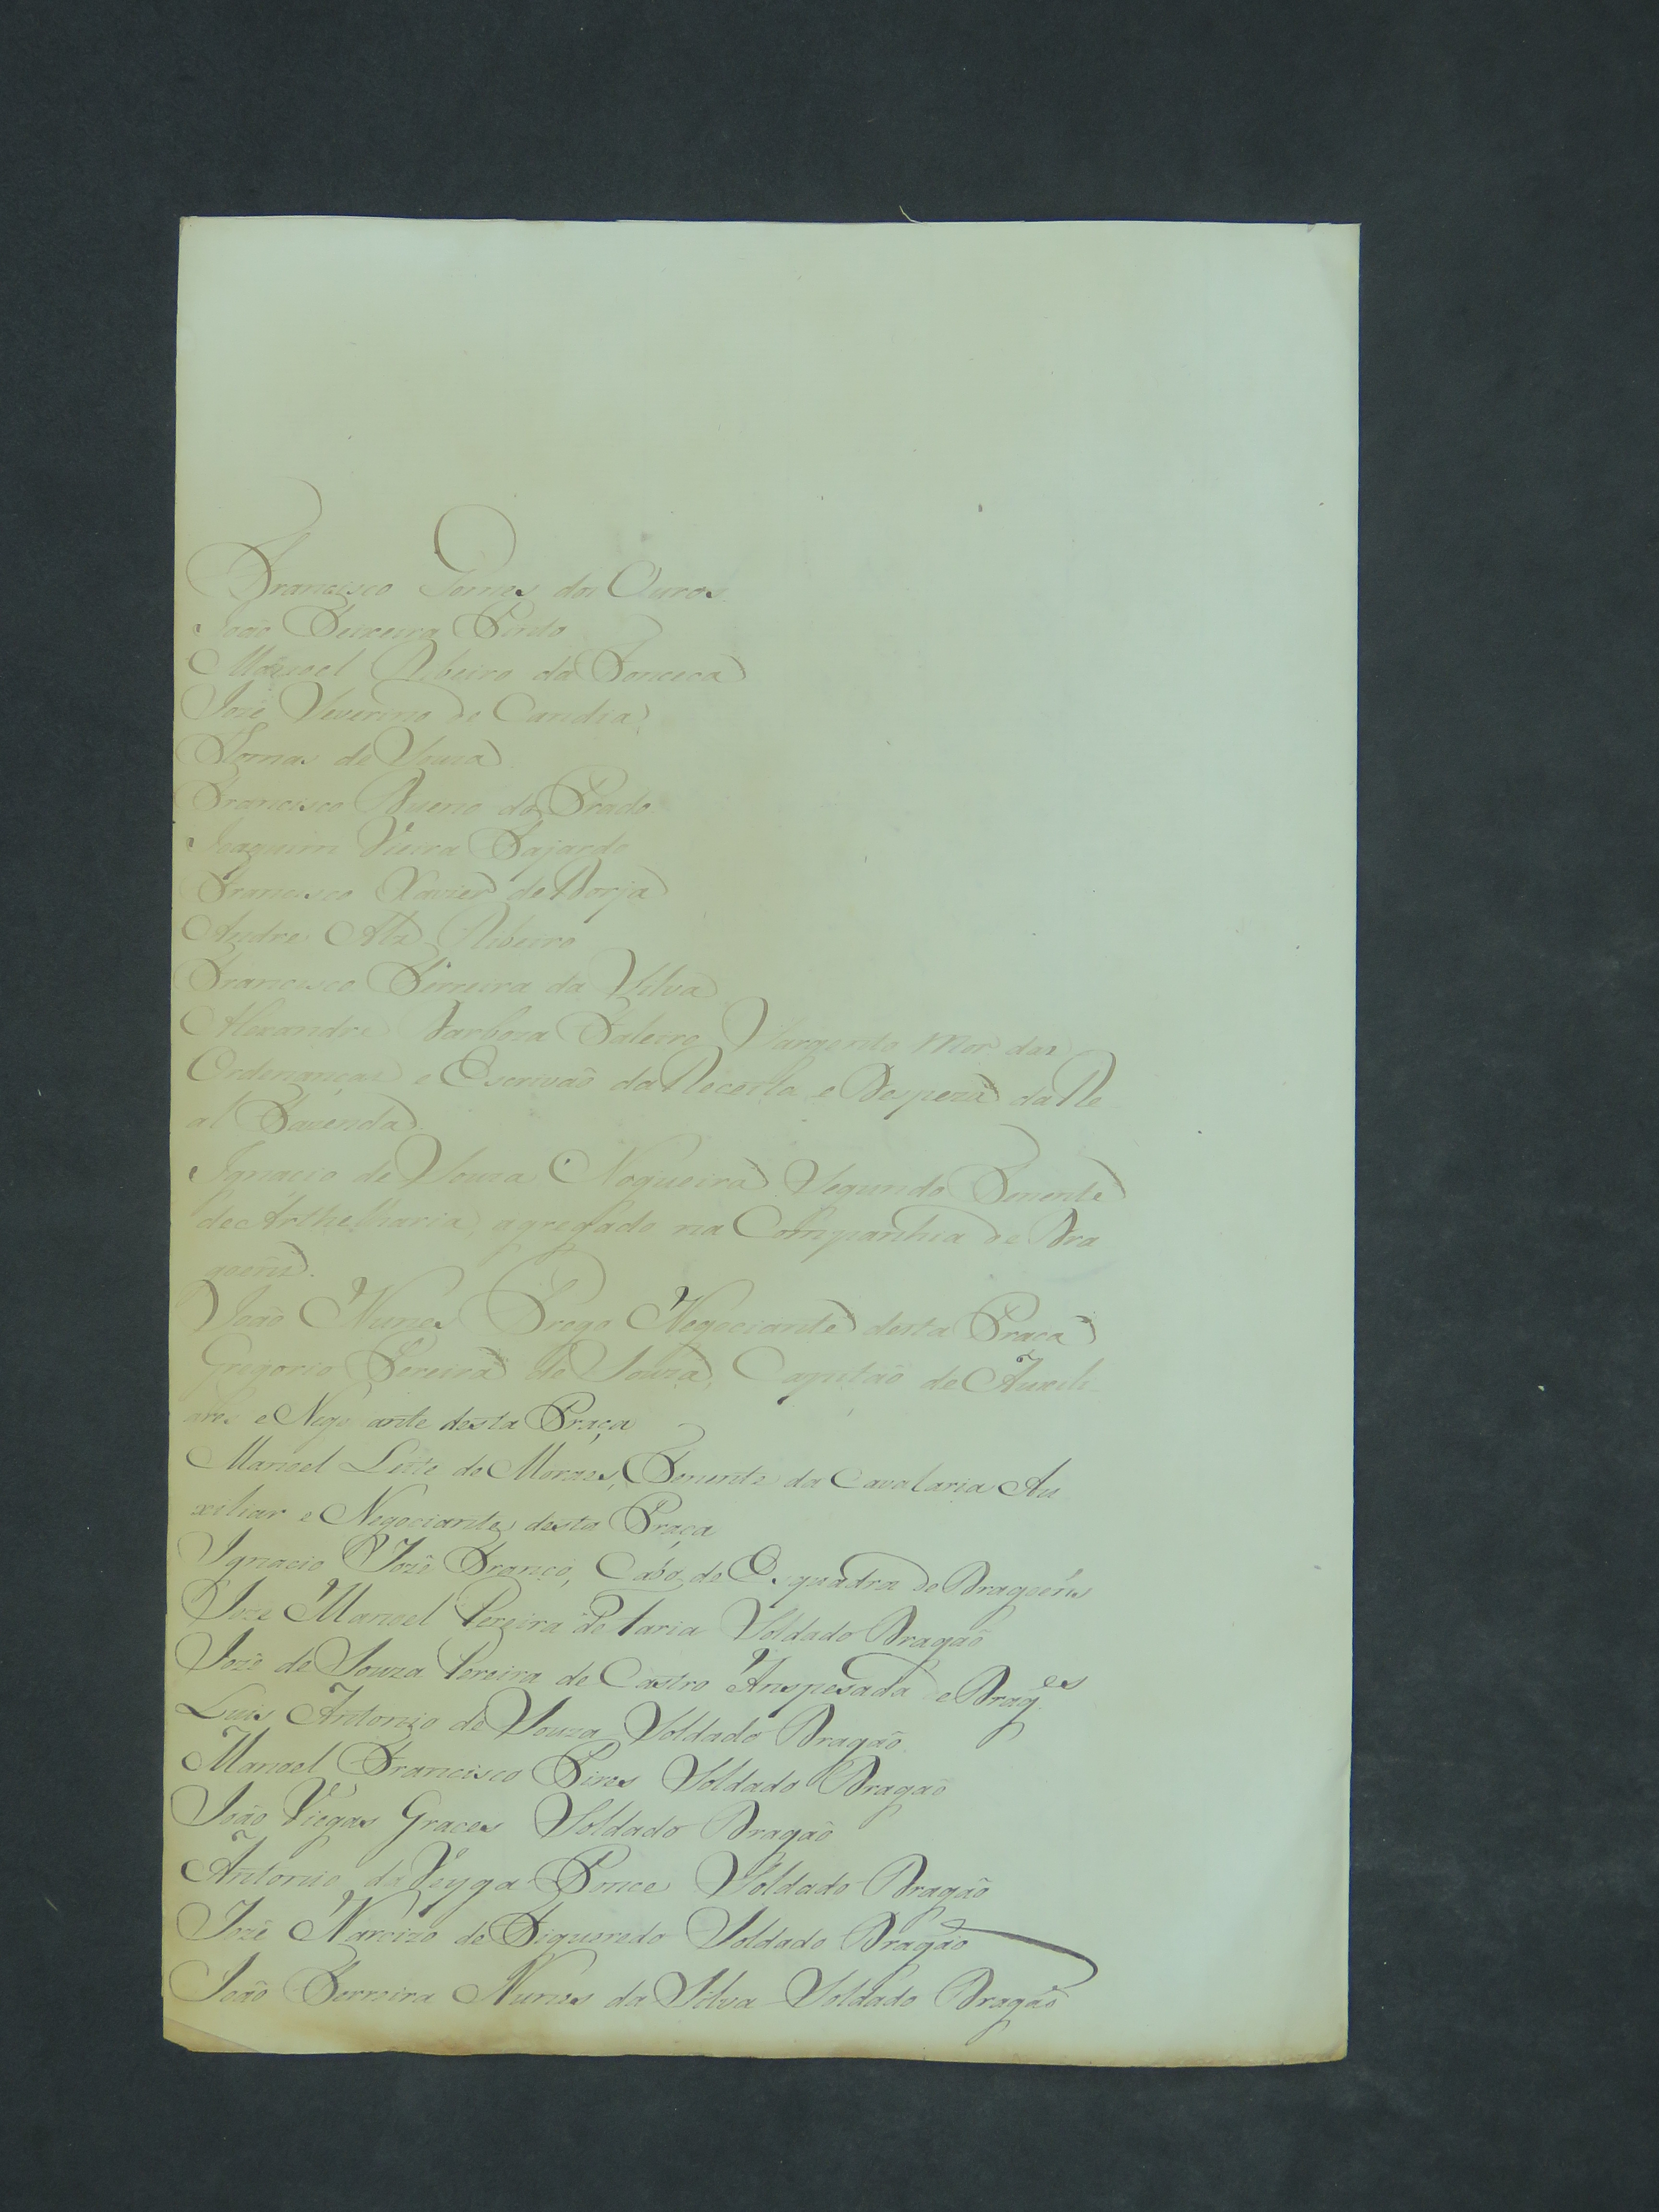 Francisco Gomes dos Ouros.
João Teixeira Pinto
Manoel Ribeiro da Fonceca
Jozé Severino de Candia
Tomas de Souza
Francisco Bueno do Prado
Joaquim Vieira Fajardo
Francisco Xavier de Borja
Andre Alz Ribeiro
Francisco Ferreira da Silva
Alexandre Barboza Faleiro Sargento Mor das
Ordenanças e Escrivaõ da Receita e Despeza da Re
al Fazenda.
Ignacio de Souza Nogueira Segundo Tenente
de Arthelharia, agregado na Companhia de Dra
goens.
João Nunes Prego Negociante desta Praça
Gregorio Pereira de Souza, Capitaõ de Auxili
ares e Nego ante desta Praça
Manoel Leite de Moraes, Tenente da Cavalaria Au
xiliar e Negociante desta Praça
Ignacio Jozê Franco, Cabo de Esquadra de Dragoens
Joze Manoel Pereira de Faria Soldado Dragaõ
Jozê de Souza Pereira de Castro Anspesada de Drag.es
Luis Antonio de Souza Soldado Dragaõ
Manoel Francisco Pires Soldado Dragaõ
João Viegas Graces Soldado Dragaõ
Antonio da Veyga Ponce Soldado Dragaõ
Jozê Narcizo de Figueredo Soldado Dragaõ
João Ferreira Nunes da Silva Soldado Dragaõ